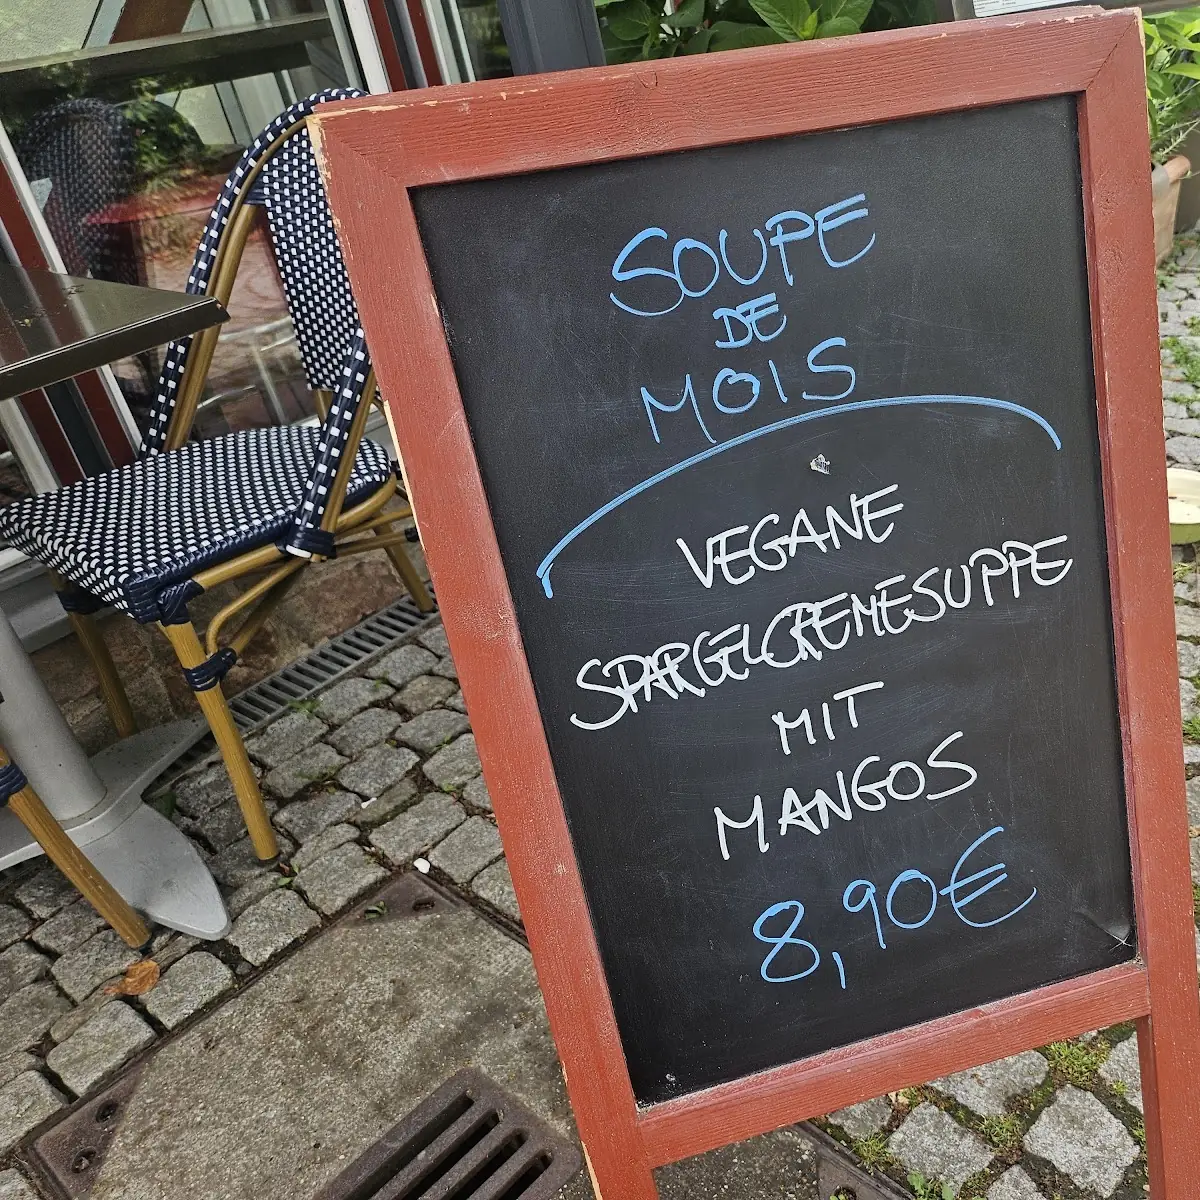 SOUPE
DE
MOIS
VEGANE
SPARGELCREMESUPPE
MIT
MANGOS
8,90€